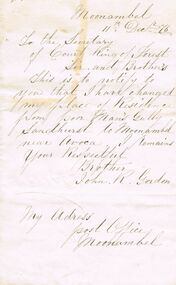 Moonambel
11th Decr 76
To the Secretary
of Court King of Forest
Sir and Brothers
This is to notify to
you that I have changed
my place of Residence
from poor Mans Gully
Sandhurst to Moonambel
near Avoca I remains
Your Respectful
Brother
John R. Gordon
My Adress
post Office
Moonambel